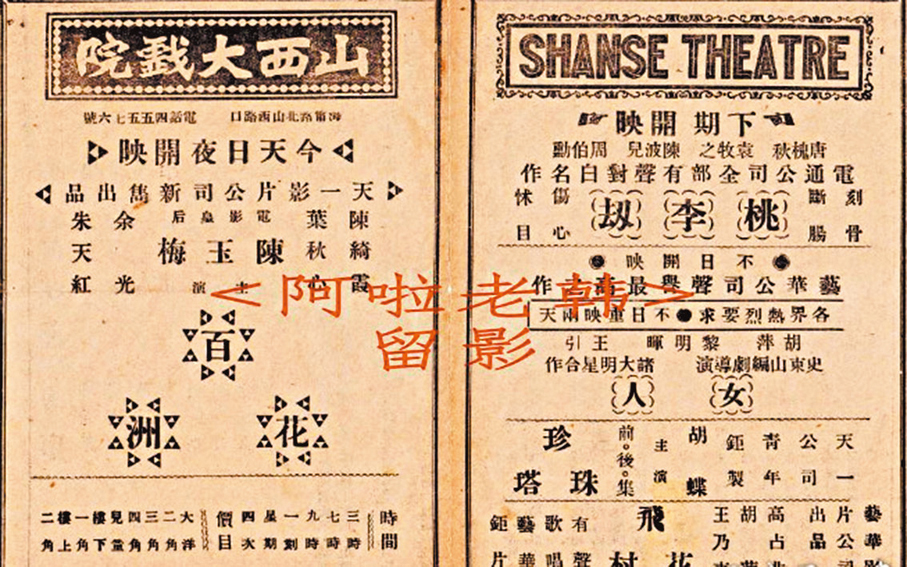 山西大戲院
海甯路北山西路口 電話四五五七六號
今天日夜開映
天一影片公司新雋出品
陳綺霞 葉秋心
電影皇后
陳玉梅
主演
余光 朱天紅
百花洲
時間 三時 七時 九時一刻 星期四次
價目 大洋二角 三角 四角 兒童樓下一角 樓上二角
SHANSE THEATRE
下期開映
唐槐秋 袁牧之 陳波兒 周伯勳
電通公司全部有聲對白名作
刻骨 斷腸
桃李刼
傷心 怵目
不日開映
藝華公司聲譽最高作
各界熱烈要求●不日重映兩天
胡萍 黎明暉 王引
史東山編劇導演 諸大明星合作
女人
天一公司青年鉅製
胡蝶主演
前●後●集
珍珠塔
飛花村
<阿啦老韩>
留影